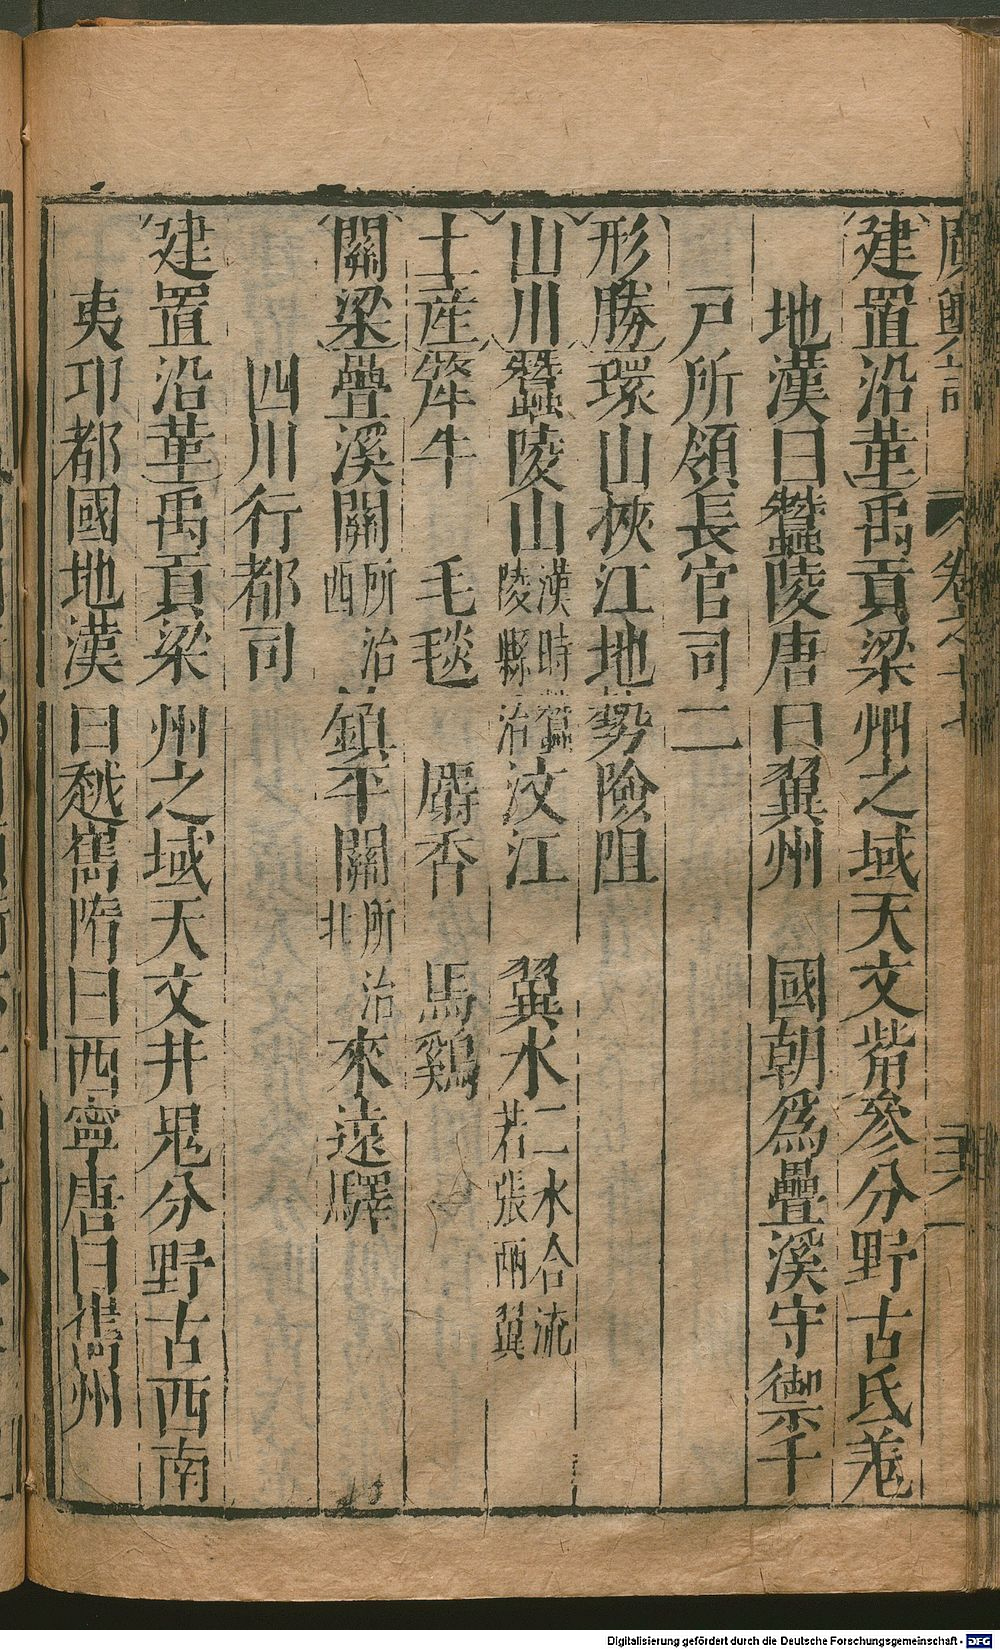 廣輿記 卷之十七 三六
建置沿革禹貢梁州之域天文觜參分野古氐羗
地漢曰蠶陵唐曰翼州 國朝為疊溪守禦千
戸所領長官司二
形勝環山挾江地勢險阻
山川蠶陵山漢時蠶陵縣治汶江 翼水二水合流若張兩翼
土産犛牛 毛毯 麝香 馬鷄
關梁疊溪關所治西鎮平關所治北來遠驛
四川行都司
建置沿革禹貢梁州之域天文井鬼分野古西南
夷邛都國地漢曰越嶲隋曰西寧唐曰嶲州
Digitalisierung gefördert durch die Deutsche Forschungsgemeinschaft - DFG